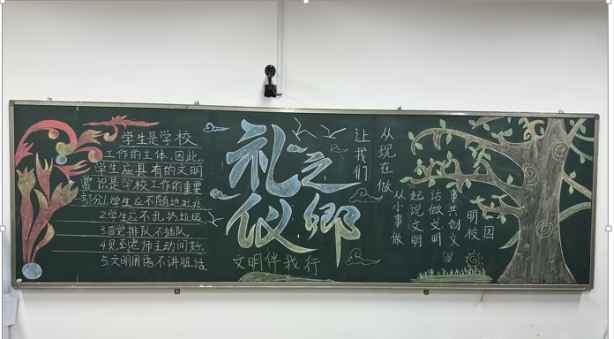 学生是学校
工作的主体,因此,
学生应具有的文明
常识是学校工作的重要
部分1.学生应不随地吐痰
2.学生应不乱扔垃圾
3.自觉排队不插队
4.见到老师主动问好
5.文明用语不讲脏话
礼之
仪乡
文明伴我行
让我们
从现在做
从小事做
起说文明
话做文明
事共创文
明校园